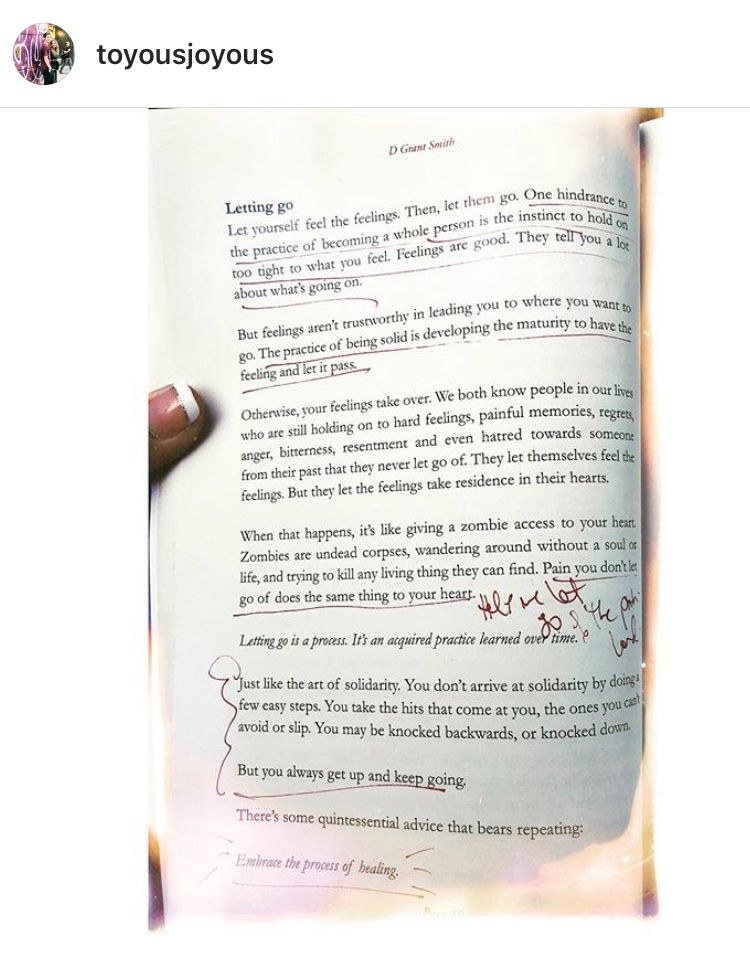 toyousjoyous
D Grant Smith
Letting go
Let yourself feel the feelings. Then, let them go. One hindrance to
the practice of becoming a whole person is the instinct to hold on
too tight to what you feel. Feelings are good. They tell you a lot
about what's going on.
But feelings aren't trustworthy in leading you to where you want to
go. The practice of being solid is developing the maturity to have the
feeling and let it pass.
Otherwise, your feelings take over. We both know people in our lives
who are still holding on to hard feelings, painful memories, regrets,
anger, bitterness, resentment and even hatred towards someone
from their past that they never let go of. They let themselves feel the
feelings. But they let the feelings take residence in their hearts.
When that happens, it's like giving a zombie access to your heart.
Zombies are undead corpses, wandering around without a soul or
life, and trying to kill any living thing they can find. Pain you don't let
go of does the same thing to your heart.
Help me let
go of the pain
Lord
Letting go is a process. It's an acquired practice learned over time.
Just like the art of solidarity. You don't arrive at solidarity by doing a
few easy steps. You take the hits that come at you, the ones you can't
avoid or slip. You may be knocked backwards, or knocked down.
But you always get up and keep going.
There's some quintessential advice that bears repeating:
Embrace the process of healing.